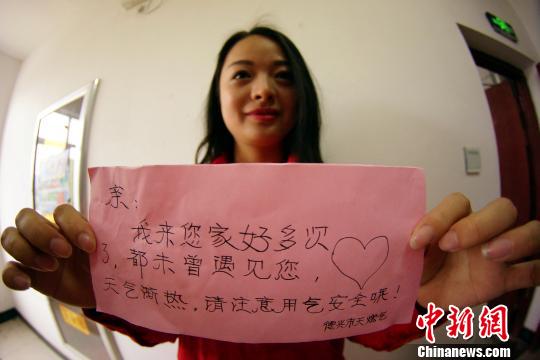 亲：
我来您家好多次
了，都未曾遇见您，
天气渐热，请注意用气安全哦！
德兴市天燃气
中新网
Chinanews.com